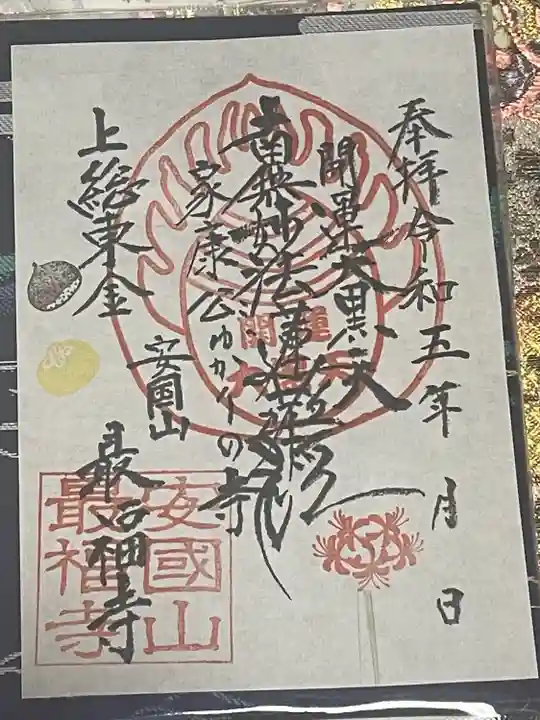 奉拝令和五年 月 日
開運大黒天
南無妙法蓮華経
家康公ゆかりの寺
安國山
上総東金
最福寺
開運
大黒天
安國山
最福寺